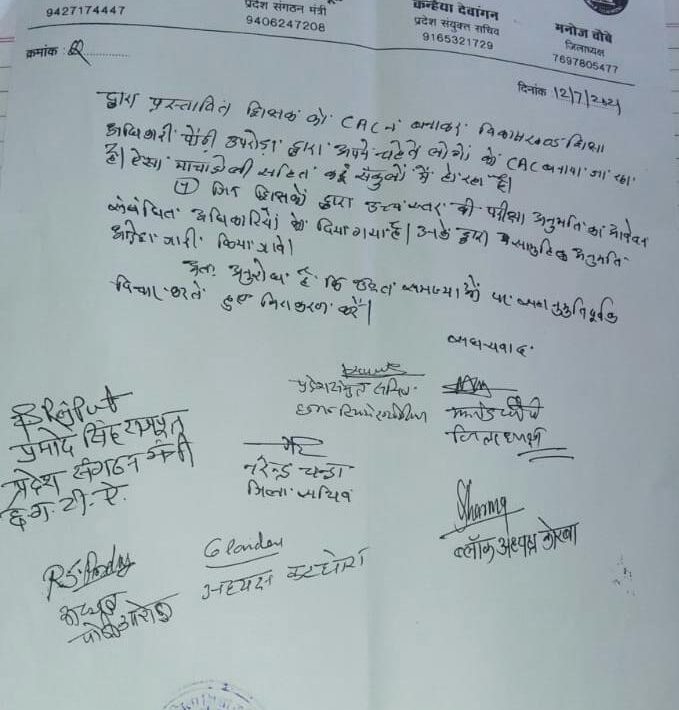 9427174447
प्रदेश संगठन मंत्री
9406247208
कन्हैया देवांगन
प्रदेश संयुक्त सचिव
9165321729
मनोज चौबे
जिलाध्यक्ष
7697805477
क्रमांक :
दिनांक 12/7/2021
द्वारा प्रस्तावित शिक्षक को CAC न बनाकर विकासखण्ड शिक्षा
अधिकारी पोंड़ी उपरोड़ा द्वारा अपने चहेते लोगों को CAC बनाया जा रहा
है। ऐसा माचाडोली सहित कई संकुलों में हो रहा है।
(7) जिन शिक्षकों द्वारा उच्च स्तर की परीक्षा अनुमति का आवेदन
संबंधित अधिकारियों को दिया गया है। द्वारा सामुहिक अनुमति
आदेश जारी किया जावे।
अतः अनुरोध है कि उक्त समस्याओं पर सहानुभूतिपूर्वक
विचार करते हुए निराकरण करें।
धन्यवाद
प्रदेश संयुक्त सचिव
जिलाध्यक्ष
प्रमोद सिंह राजपूत
प्रदेश संगठन मंत्री
छ.ग. टी. ऐ.
नरेन्द्र चन्द्रा
जिला सचिव
Sharma
ब्लॉक अध्यक्ष कोरबा
अध्यक्ष कटघोरा
अध्यक्ष